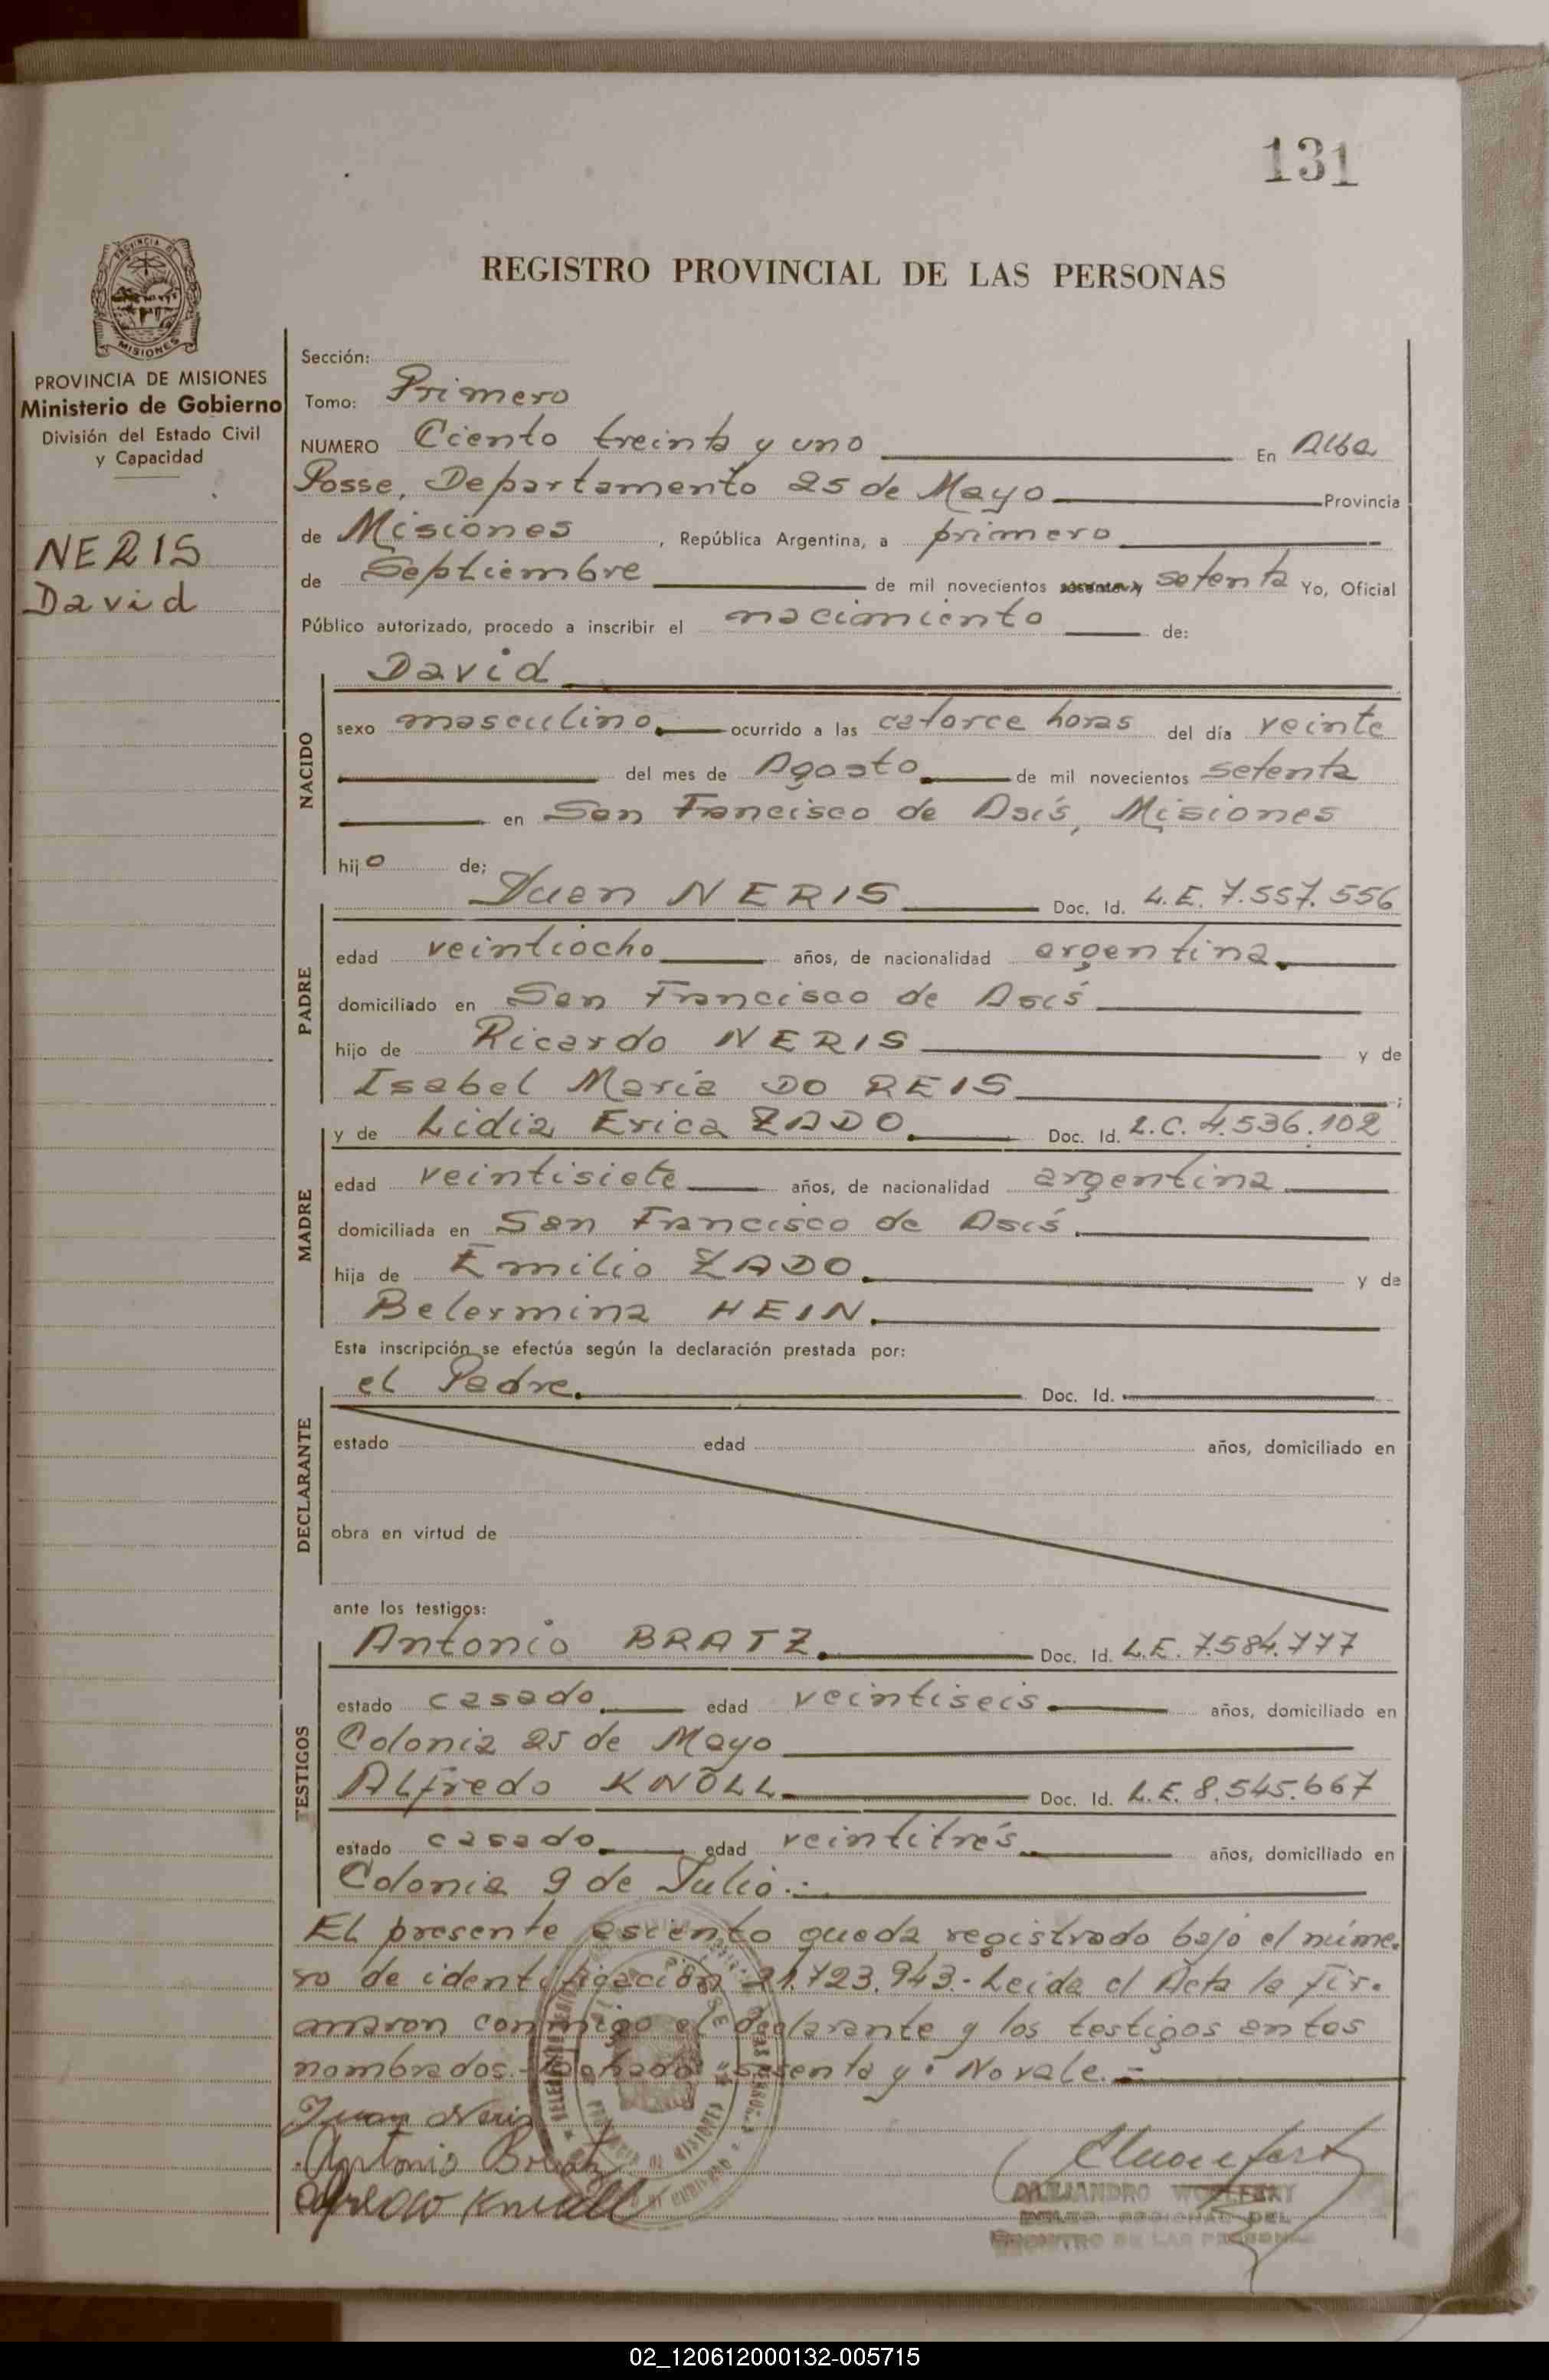 131
PROVINCIA DE
MISIONES
REGISTRO PROVINCIAL DE LAS PERSONAS
PROVINCIA DE MISIONES
Ministerio de Gobierno
División del Estado Civil
y Capacidad
NERIS
David
Sección:
Tomo: Primero
NUMERO Ciento treinta y uno En Alba
Posse, Departamento 25 de Mayo Provincia
de Misiones, República Argentina, a primero
de Septiembre de mil novecientos sesenta y setenta Yo, Oficial
Público autorizado, procedo a inscribir el nacimiento de:
NACIDO
David
sexo masculino. ocurrido a las catorce horas del día veinte
del mes de Agosto de mil novecientos setenta
en San Francisco de Asís, Misiones
hijo de;
PADRE
Juan NERIS Doc. Id. L.E. 7.557.556
edad veintiocho años, de nacionalidad argentina.
domiciliado en San Francisco de Asís
hijo de Ricardo NERIS y de
Isabel María DO REIS;
MADRE
y de Lidia Erica ZADO. Doc. Id. L.C. 4.536.102
edad veintisiete años, de nacionalidad argentina
domiciliada en San Francisco de Asís.
hija de Emilio ZADO. y de
Belermina HEIN.
Esta inscripción se efectúa según la declaración prestada por:
DECLARANTE
el Padre. Doc. Id.
estado edad años, domiciliado en
obra en virtud de
ante los testigos:
TESTIGOS
Antonio BRATZ. Doc. Id. L.E. 7.584.777
estado casado. edad veintiseis años, domiciliado en
Colonia 25 de Mayo
Alfredo KNÖLL. Doc. Id. L.E. 8.545.667
estado casado. edad veintitrés. años, domiciliado en
Colonia 9 de Julio.-
El presente asiento queda registrado bajo el núme-
ro de identificación 21.723.943.- Leida el Acta la fir-
maron conmigo el declarante y los testigos antes
nombrados.- Tachado: sesenta y: No vale.-
Juan Neris
Antonio Bratz
Alfredo Knöll
ALEJANDRO
REGISTRO DE LAS PERSONAS
02_120612000132-005715